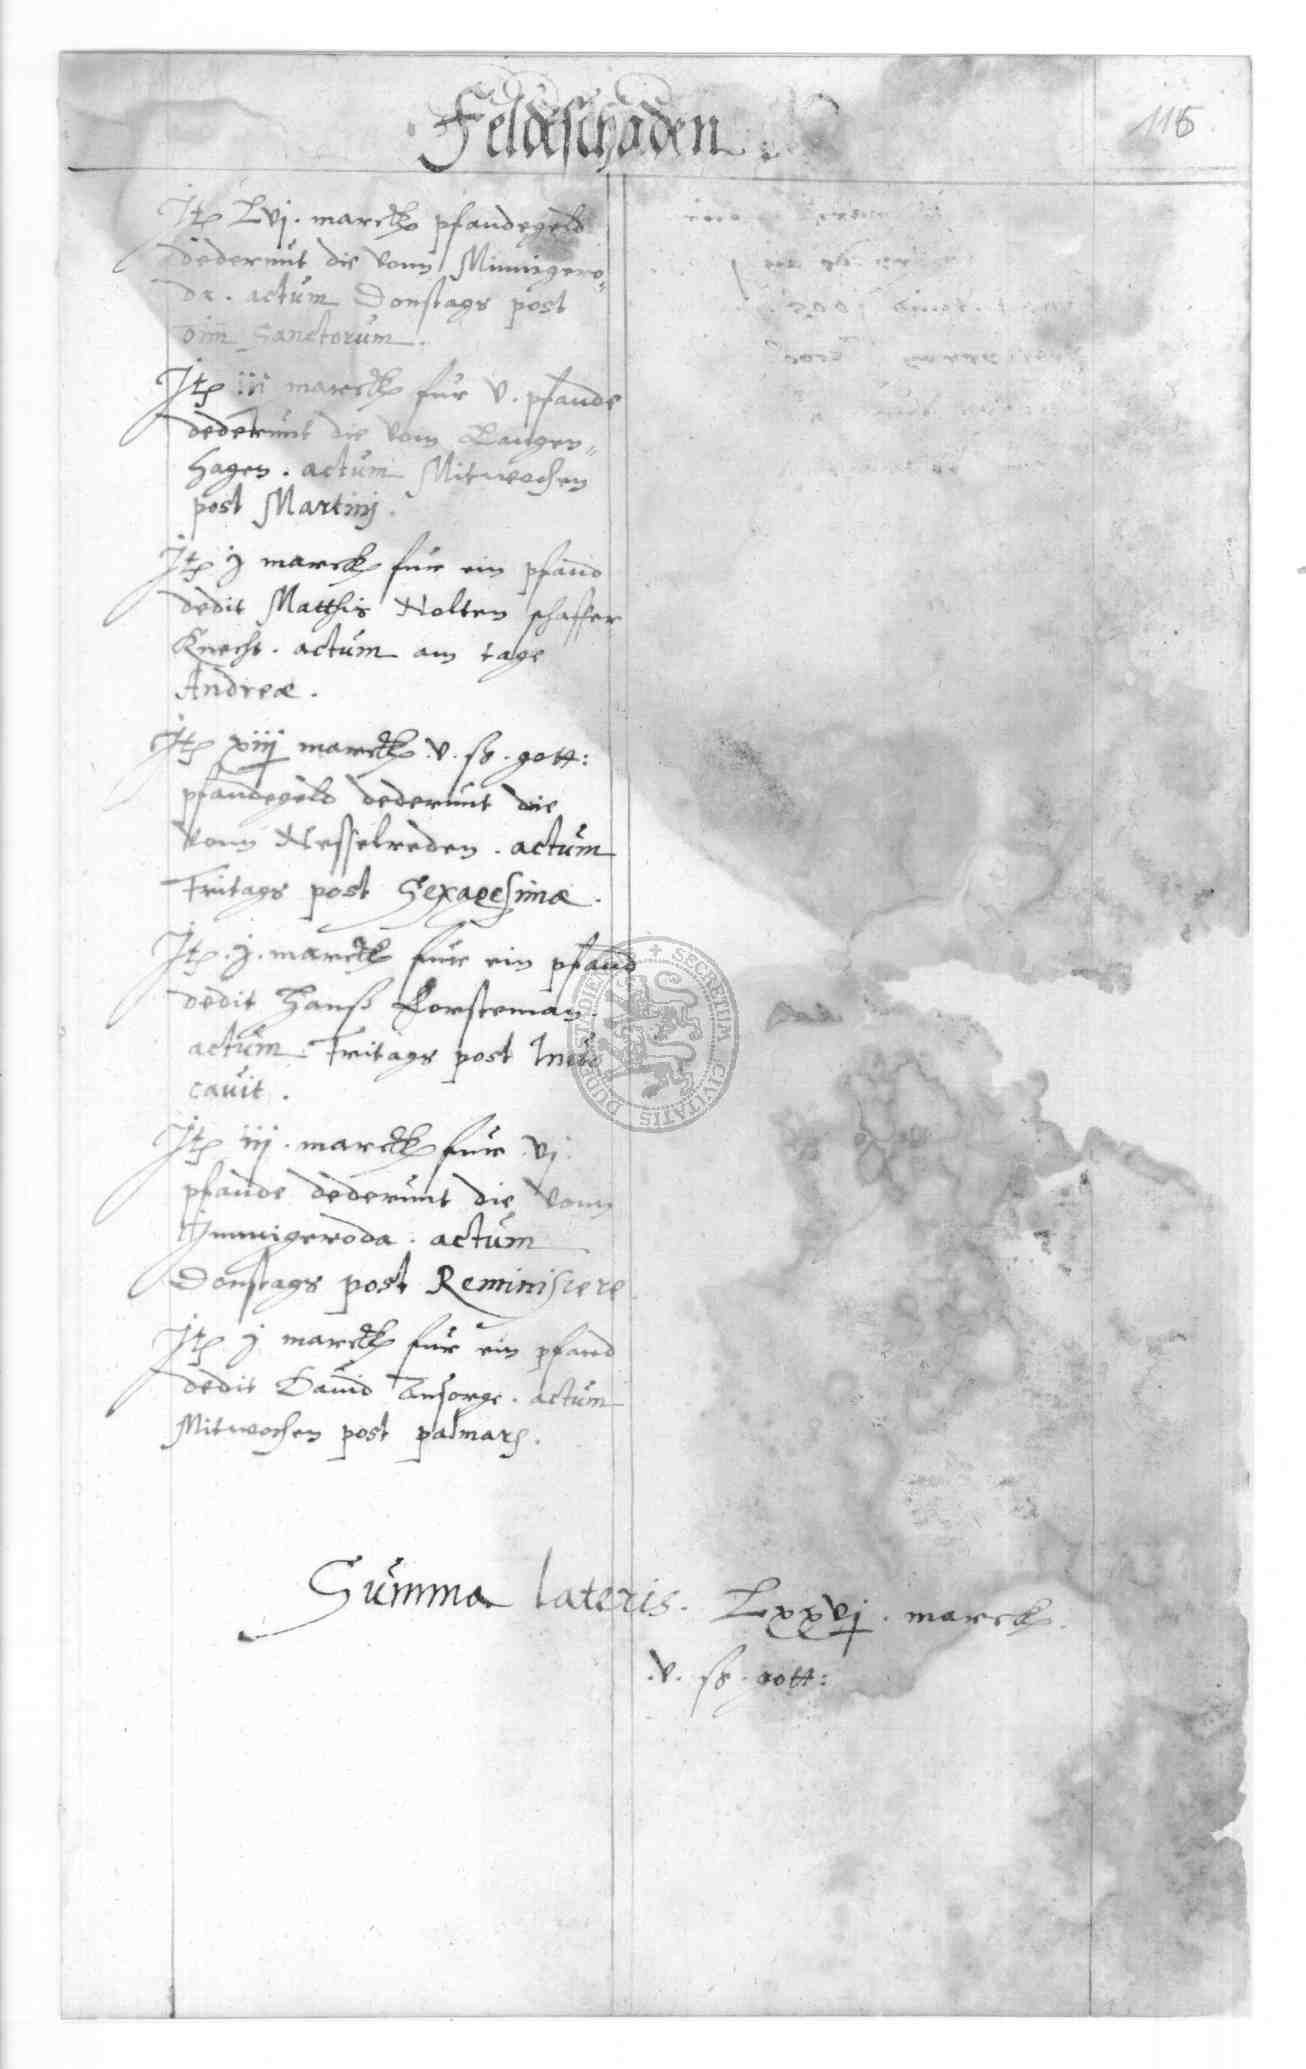 Feldeschaden
115
Jt Lvj . marck pfandegeld
dederunt die vonn Minnigero„
de . actum Donstags post
oim Sanctorum .
Jt iij marck für v . pfande
dederunt die vom Langen„
hagen . actum Mitwochen
post Martinj .
Jt j marck für ein pfand
dedit Matthis Nolten schaffer
Knecht . actum am tage
Andreæ .
Jt xiij marck . v . ß . gott :
pfandegeld dederunt die
vonn Nesselreden . actum
Fritags post Sexagesimæ .
Jt . j . marck für ein pfand
dedit Hanß Forsteman .
actum Fritags post Inuo
cavit .
Jt iij . marck für vj
pfande dederunt die vonn
Immigeroda . actum
Donstags post Reminiscere
Jt j marck für ein pfand
dedit Dauid Ansorge . actum
Mitwochen post palmarum .
Summa lateris . Lxxvj . marck .
. v . ß . gott :
SECRETUM CIVITATIS